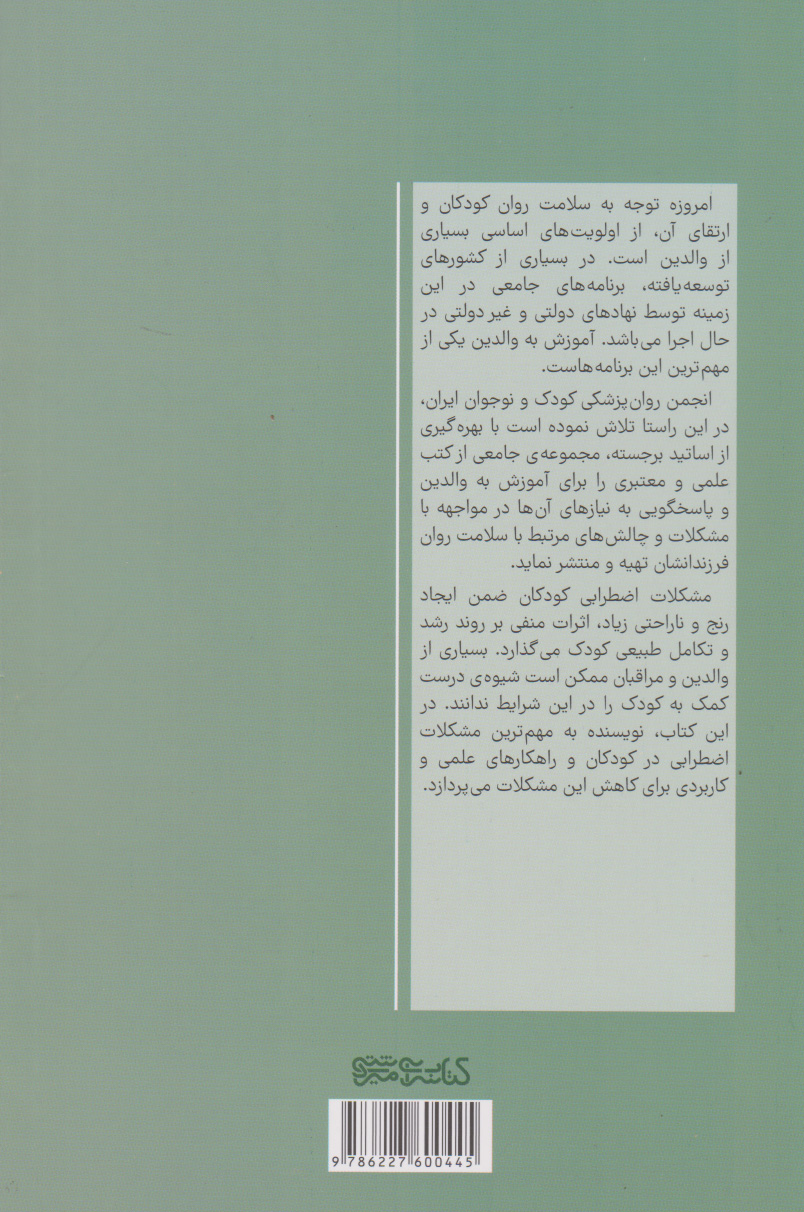 امروزه توجه به سلامت روان کودکان و
ارتقای آن، از اولویت‌های اساسی بسیاری
از والدین است. در بسیاری از کشورهای
توسعه‌یافته، برنامه‌های جامعی در این
زمینه توسط نهادهای دولتی و غیر دولتی در
حال اجرا می‌باشد. آموزش به والدین یکی از
مهم‌ترین این برنامه‌هاست.
انجمن روان‌پزشکی کودک و نوجوان ایران،
در این راستا تلاش نموده است با بهره‌گیری
از اساتید برجسته، مجموعه‌ی جامعی از کتب
علمی و معتبری را برای آموزش به والدین
و پاسخگویی به نیازهای آن‌ها در مواجهه با
مشکلات و چالش‌های مرتبط با سلامت روان
فرزندانشان تهیه و منتشر نماید.
مشکلات اضطرابی کودکان ضمن ایجاد
رنج و ناراحتی زیاد، اثرات منفی بر روند رشد
و تکامل طبیعی کودک می‌گذارد. بسیاری از
والدین و مراقبان ممکن است شیوه‌ی درست
کمک به کودک را در این شرایط ندانند. در
این کتاب، نویسنده به مهم‌ترین مشکلات
اضطرابی در کودکان و راهکارهای علمی و
کاربردی برای کاهش این مشکلات می‌پردازد.
کتابسرای میردشتی
9 786227 600445